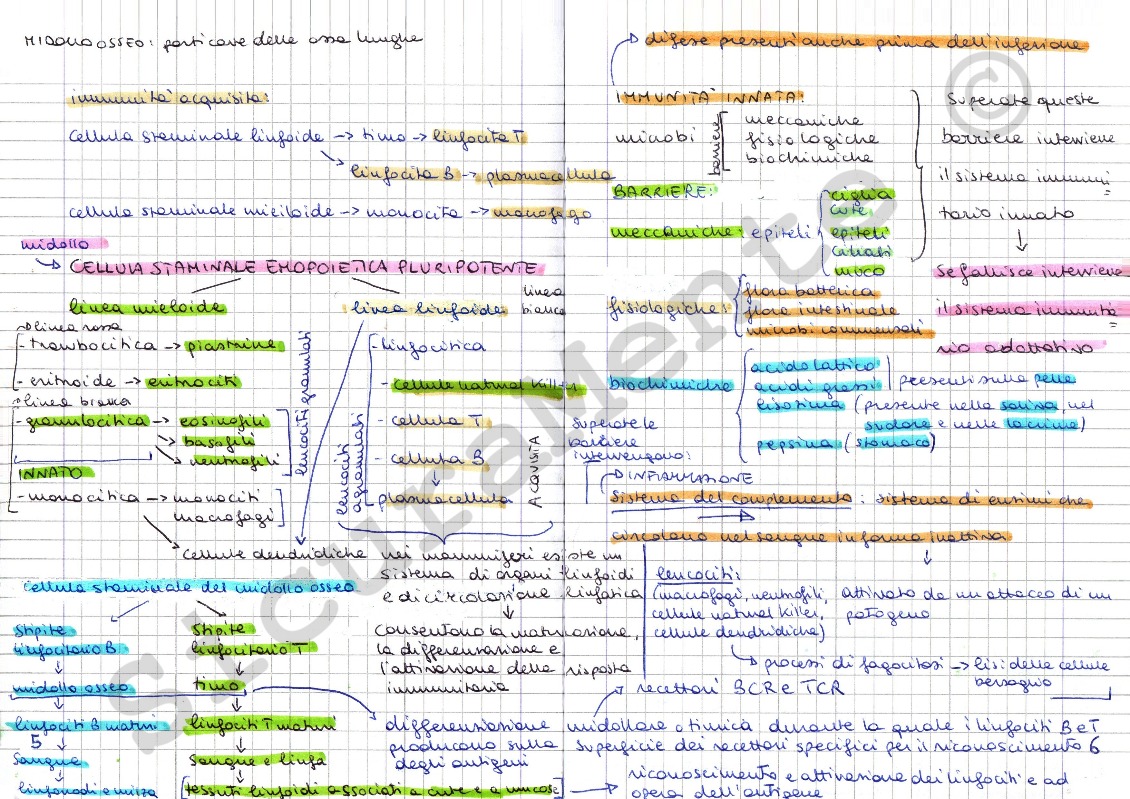 MIDOLLO OSSEO: parti cave delle ossa lunghe
immunità acquisita:
cellula staminale linfoide → timo → linfocita T
linfocita B → plasmacellula
cellula staminale mieiloide → monocita → macrofago
midollo
CELLULA STAMINALE EMOPOIETICA PLURIPOTENTE
linea mieloide
linea linfoide
linea
bianca
linea rossa
- trombocitica → piastrine
- eritroide → eritrociti
linea bianca
- granulocitica → eosinofili
→ basofili
→ neutrofili
leucociti granulati
INNATO
- monocitica → monociti
macrofagi
cellule dendridiche
- linfocitica
- cellule natural killer
- cellula T
- cellula B
plasmacellula
leucociti
agranulati
ACQUISITA
nei mammiferi esiste un
sistema di organi linfoidi
e di circolazione linfatica
consentono la maturazione,
la differenziazione e
l'attivazione della risposta
immunitaria
cellula staminale del midollo osseo
stipite
linfocitario B
midollo osseo
linfociti B maturi
sangue
linfonodi e milza
stipite
linfocitario T
timo
linfociti T maturi
sangue e linfa
tessuti linfoidi associati a cute e a mucose
5
differenziazione midollare o timica durante la quale i linfociti B e T
producono sulla superficie dei recettori specifici per il riconoscimento
degli antigeni
6
→ recettori BCR e TCR
riconoscimento e attivazione dei linfociti e ad
opera dell'antigene
difese presenti anche prima dell'infezione
IMMUNITÀ INNATA:
microbi
barriere
meccaniche
fisiologiche
biochimiche
BARRIERE:
meccaniche: epiteli
ciglia
cute
epiteli
ciliati
muco
fisiologiche:
flora batterica
flora intestinale
microbi commensali
biochimiche
acido lattico
acidi grassi
presenti sulla pelle
lisozima (presente nella saliva, nel
sudore e nelle lacrime)
pepsina (stomaco)
Superate queste
barriere interviene
il sistema immuni
tario innato
se fallisce interviene
il sistema immunita
rio adattativo
Superate le
barriere
intervengono:
INFIAMMAZIONE
sistema del complemento: sistema di enzimi che
circolano nel sangue in forma inattiva
attivato da un attacco di un
patogeno
leucociti:
(macrofagi, neutrofili,
cellule natural killer,
cellule dendridiche)
→ processi di fagocitosi → lisi delle cellule
bersaglio
©
SicuraMente